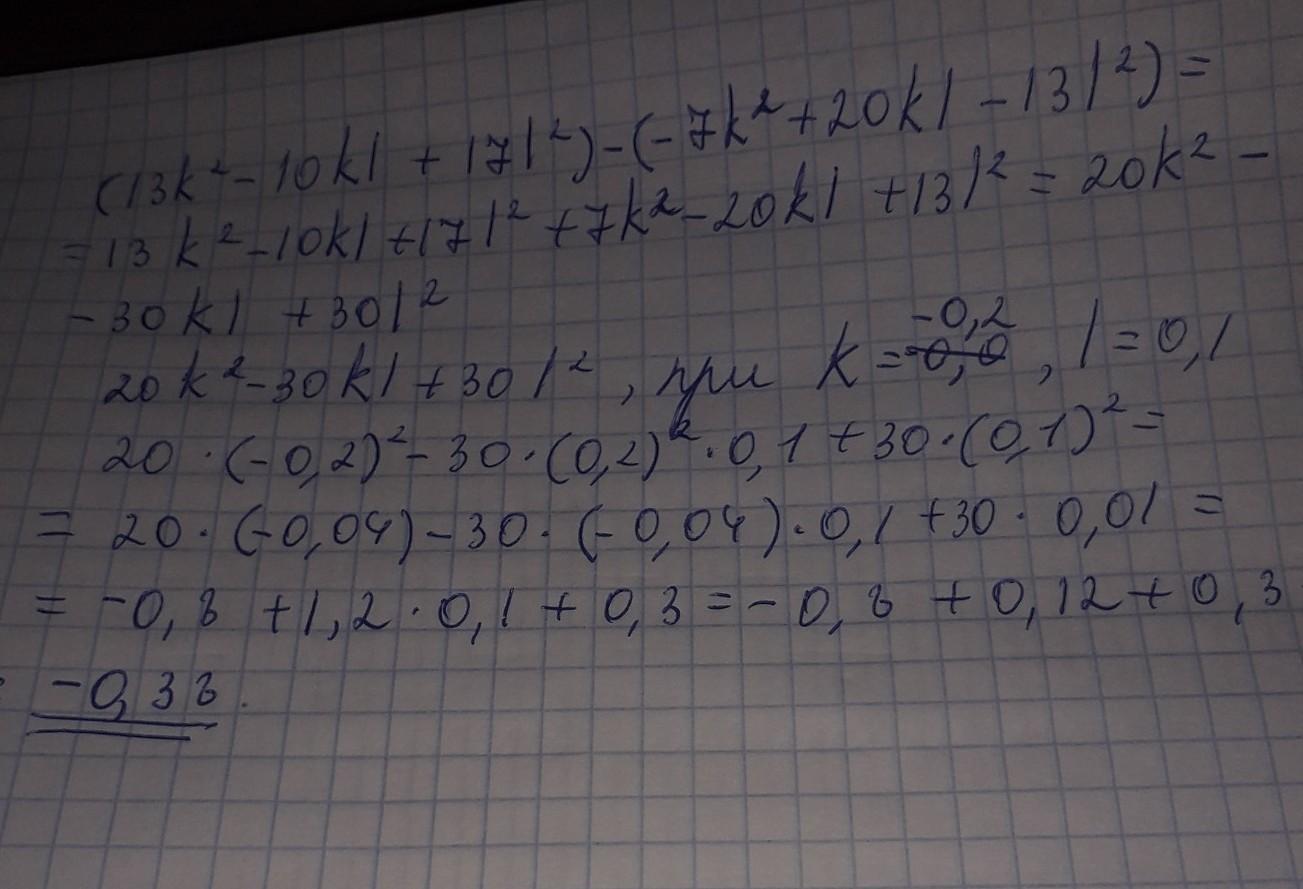 (13k² - 10kl + 17l²) - (-7k² + 20kl - 13l²) =
= 13k² - 10kl + 17l² + 7k² - 20kl + 13l² = 20k² -
- 30kl + 30l²
-0,2
20k² - 30kl + 30l², при k = -0,0, l = 0,1
20 · (-0,2)² - 30 · (0,2)² · 0,1 + 30 · (0,1)² =
= 20 · (-0,04) - 30 · (-0,04) · 0,1 + 30 · 0,01 =
= -0,8 + 1,2 · 0,1 + 0,3 = -0,8 + 0,12 + 0,3
-0,38.